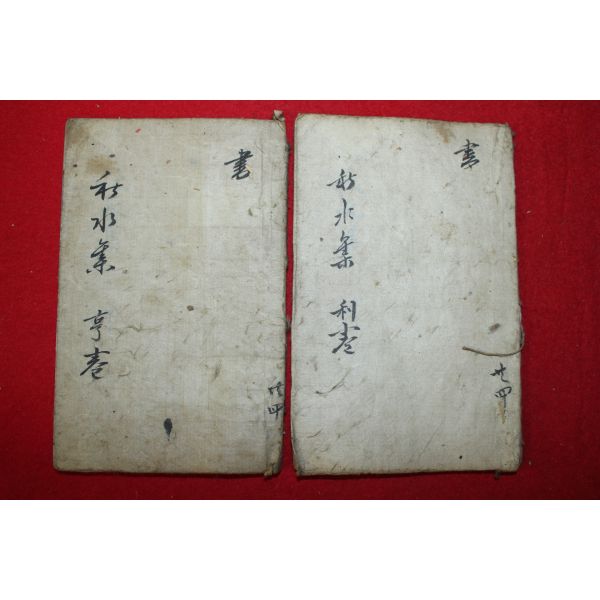 書
共四
秋水集 亨卷
書
共四
秋水集 利卷